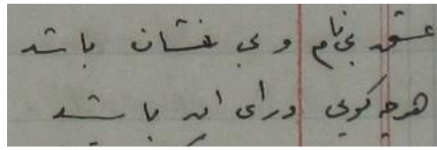 عشق بی نام و بی نشان باشد
هرچه گویی ورای آن باشد